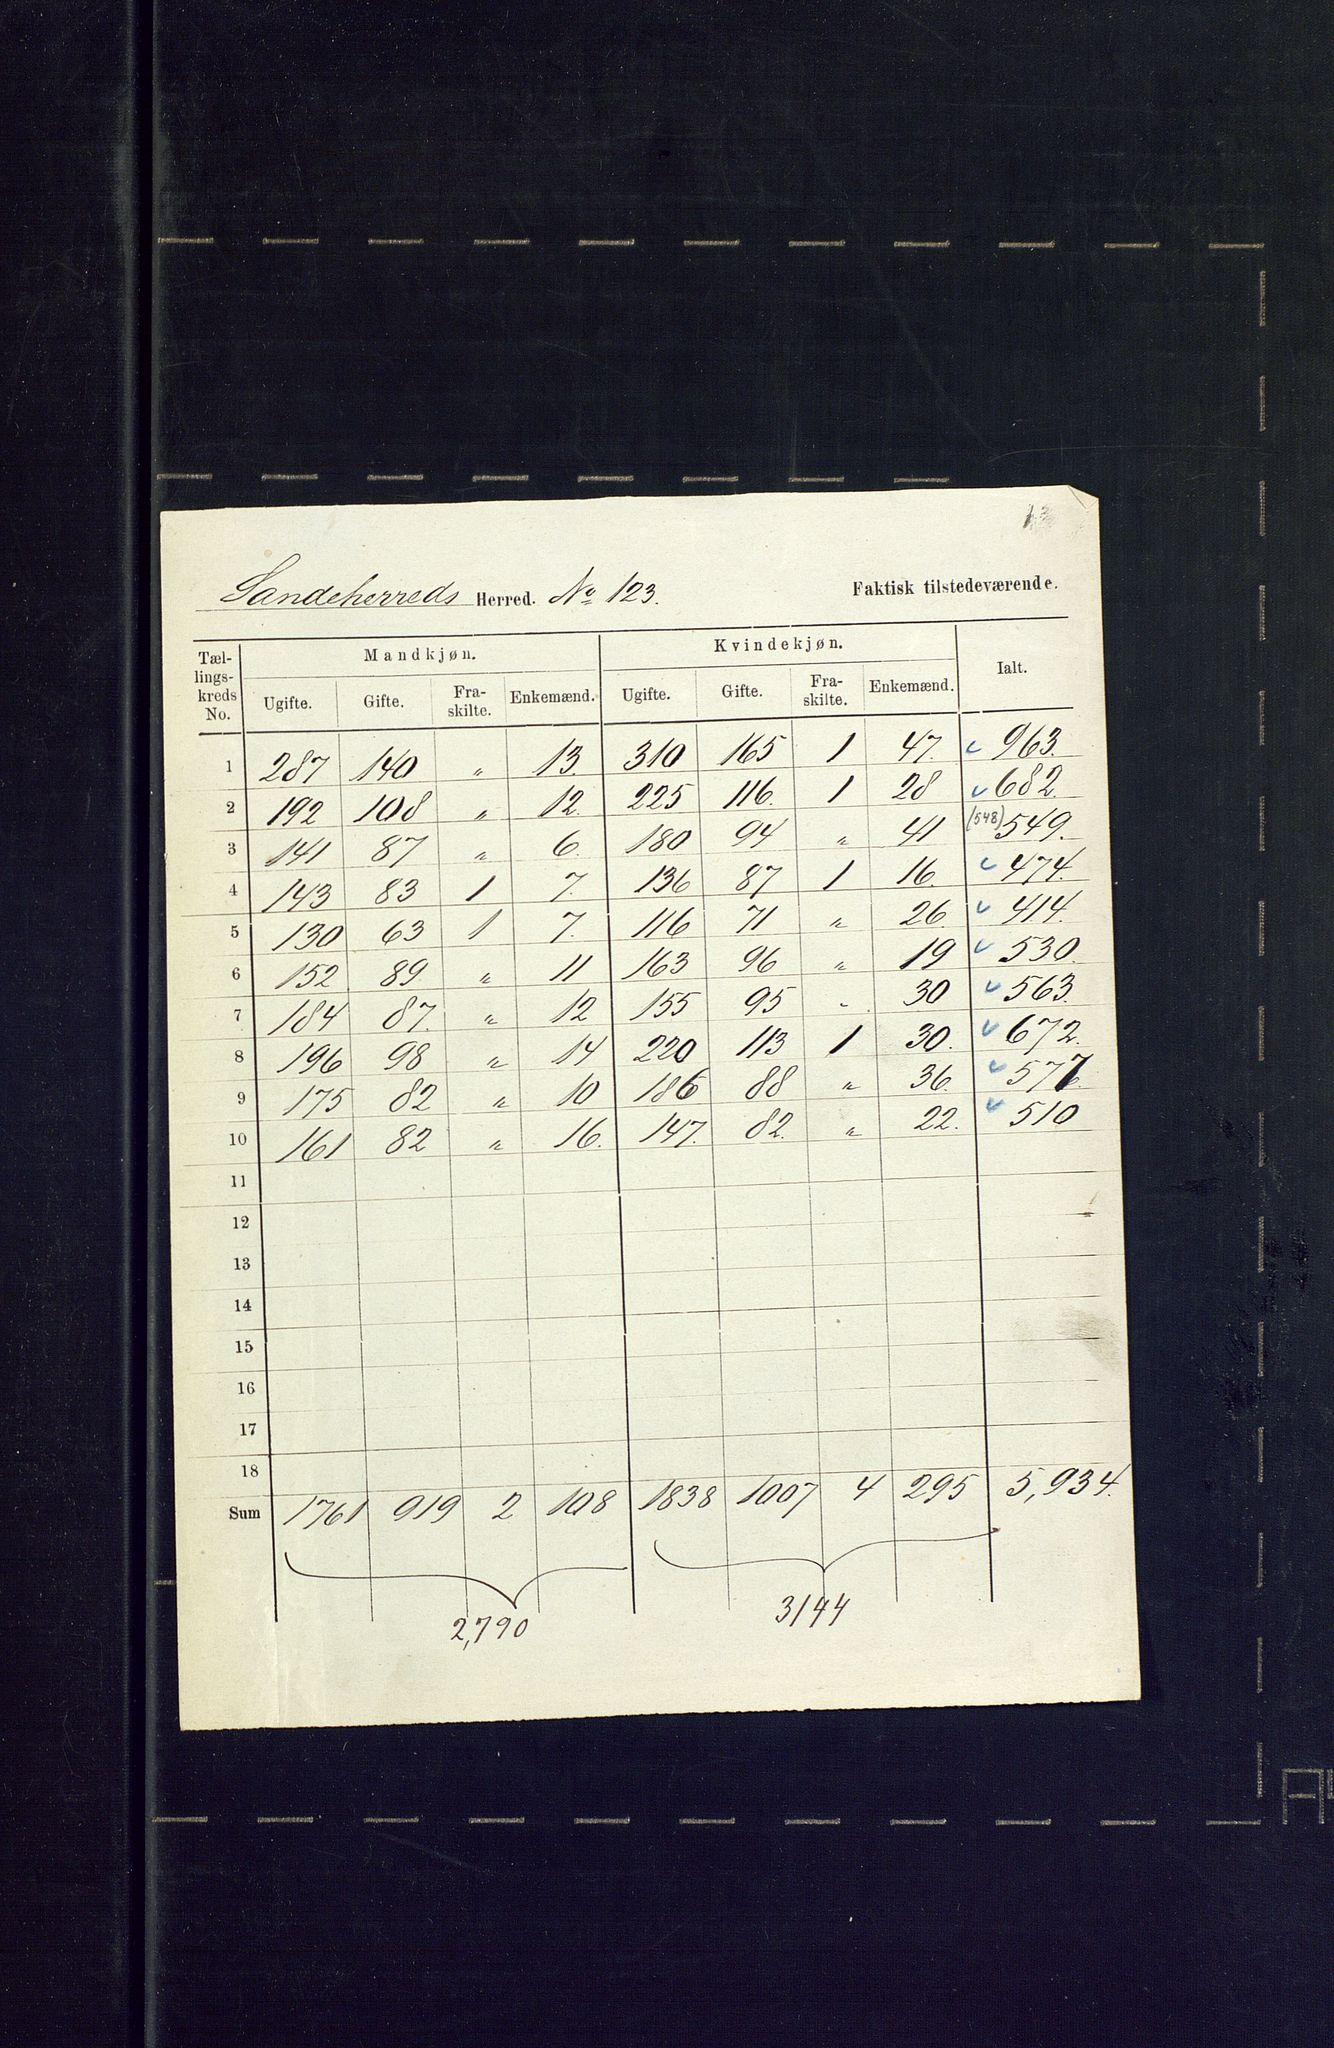 Sandeherreds Herred. No 123. Faktisk tilstedeværende.
Tællingskreds No. Mandkjøn. Kvindekjøn. Ialt.
Ugifte. Gifte. Fraskilte. Enkemænd. Ugifte. Gifte. Fraskilte. Enkemænd.
1 287 140 „ 13. 310 165 1 47. 963.
2 192 108 „ 12. 225 116. 1 28 682.
3 141 87 „ 6. 180 94 „ 41 (548) 549.
4 143 83 1 7. 136 87 1 16. 474.
5 130 63 1 7. 116 71 „ 26. 414.
6 152 89. „ 11 163 96 „ 19 530.
7 184 87. „ 12 155 95 „ 30 563.
8 196 98 „ 14 220 113 1 30. 672.
9 175 82 „ 10 186 88 „ 36. 577.
10 161 82 „ 16. 147. 82. „ 22. 510
11
12
13
14
15
16
17
18
Sum 1761 919 2 108 1838 1007 4 295 5,934.
2,790 3144